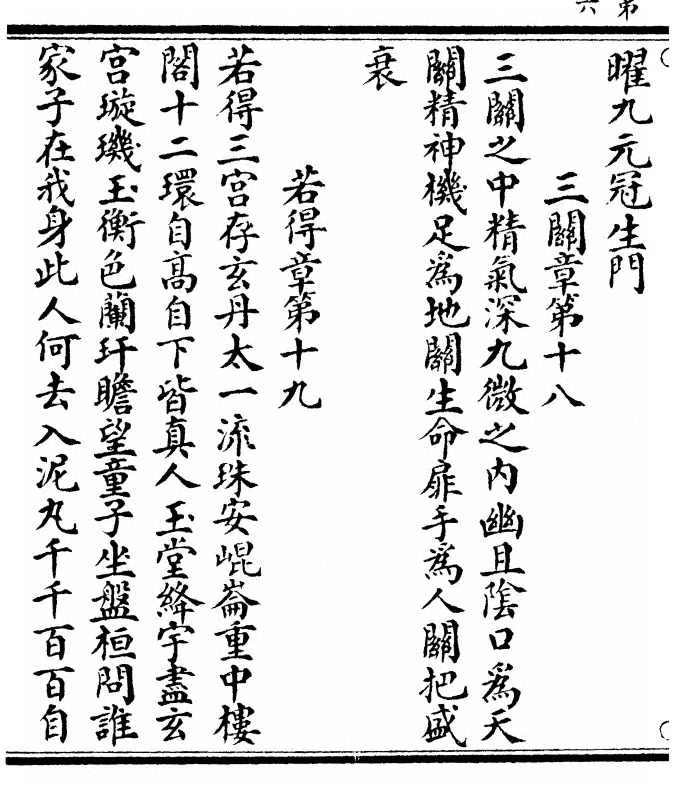 第六
曜九元冠生門
三關章第十八
三關之中精氣深九微之内幽且陰口爲天
關精神機足爲地關生命扉手爲人關把盛
衰
若得章第十九
若得三宫存玄丹太一流珠安崐崙重中樓
閣十二環自髙自下皆真人玉堂絳宇盡玄
宫璇璣玉衡色蘭玕瞻望童子坐盤桓問誰
家子在我身此人何去入泥丸千千百百自